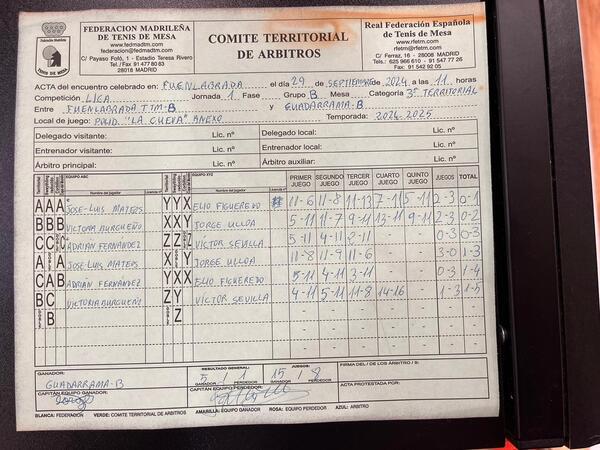 FEDERACION MADRILEÑA
DE TENIS DE MESA
www.fedmadtm.com
federacion@fedmadtm.com
C/ Payaso Fofó, 1 - Estadio Teresa Rivero
Tel./Fax 91 477 80 83
28018 MADRID
TENIS DE MESA
COMITE TERRITORIAL
DE ARBITROS
Real Federación Española
de Tenis de Mesa
www.rfetm.com
rfetm@rfetm.com
C/ Ferraz, 16 - 28008 MADRID
Tels.: 625 966 610 - 91 547 77 26
Fax: 91 542 92 05
ACTA del encuentro celebrado en: FUENLABRADA el día 29 de SEPTIEMBRE de 2024 a las 11 horas
Competición LIGA Jornada 1 Fase Grupo B Mesa Categoría 3ª TERRITORIAL
Entre FUENLABRADA TTM-B y GUADARRAMA-B
Local de juego: POLID. "LA CUEVA" ANEXO Temporada: 2024-2025
Delegado visitante: Lic. nº Delegado local: Lic. nº
Entrenador visitante: Lic. nº Entrenador local: Lic. nº
Árbitro principal: Árbitro auxiliar: Lic. nº
EQUIPO ABC Nombre del jugador Licencia nº EQUIPO XYZ Nombre del jugador Licencia nº PRIMER JUEGO SEGUNDO JUEGO TERCER JUEGO CUARTO JUEGO QUINTO JUEGO JUEGOS TOTAL
A A A JOSE-LUIS MATEOS Y Y X ELIO FIGUEREDO 11-6 11-8 11-13 7-11 5-11 2-3 0-1
B B B VICTORIA BURGUEÑO X X Y JORGE ULLOA 5-11 11-7 9-11 13-11 9-11 2-3 0-2
C C ADRIAN FERNANDEZ Z Z VICTOR SEVILLA 5-11 4-11 2-11 - - 0-3 0-3
A A JOSE-LUIS MATEOS X Y JORGE ULLOA 11-8 11-9 11-6 - - 3-0 1-3
C A B ADRIAN FERNANDEZ Y X X ELIO FIGUEREDO 5-11 4-11 3-11 - - 0-3 1-4
B C VICTORIA BURGUEÑO Z Y VICTOR SEVILLA 4-11 5-11 11-8 14-16 - 1-3 1-5
B Z
GANADOR: GUADARRAMA-B
RESULTADO GENERAL: 5 / 1 GANADOR PERDEDOR
JUEGOS: 15 / 8 GANADOR PERDEDOR
FIRMA DEL / DE LOS ÁRBITRO / S:
CAPITÁN EQUIPO GANADOR: Jorge
CAPITÁN EQUIPO PERDEDOR:
ACTA PROTESTADA POR:
BLANCA: FEDERACIÓN VERDE: COMITE TERRITORIAL DE ARBITROS AMARILLA: EQUIPO GANADOR ROSA: EQUIPO PERDEDOR AZUL: ARBITRO